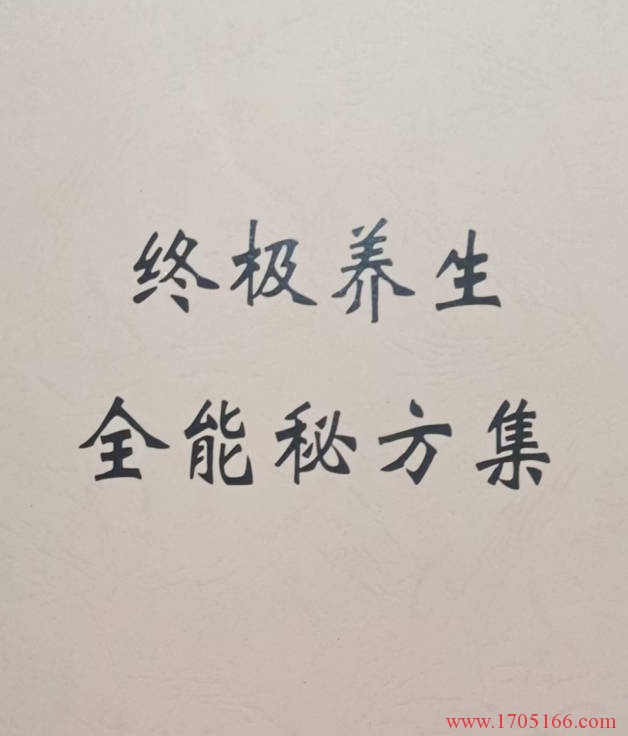 终极养生
全能秘方集
www.1705166.com